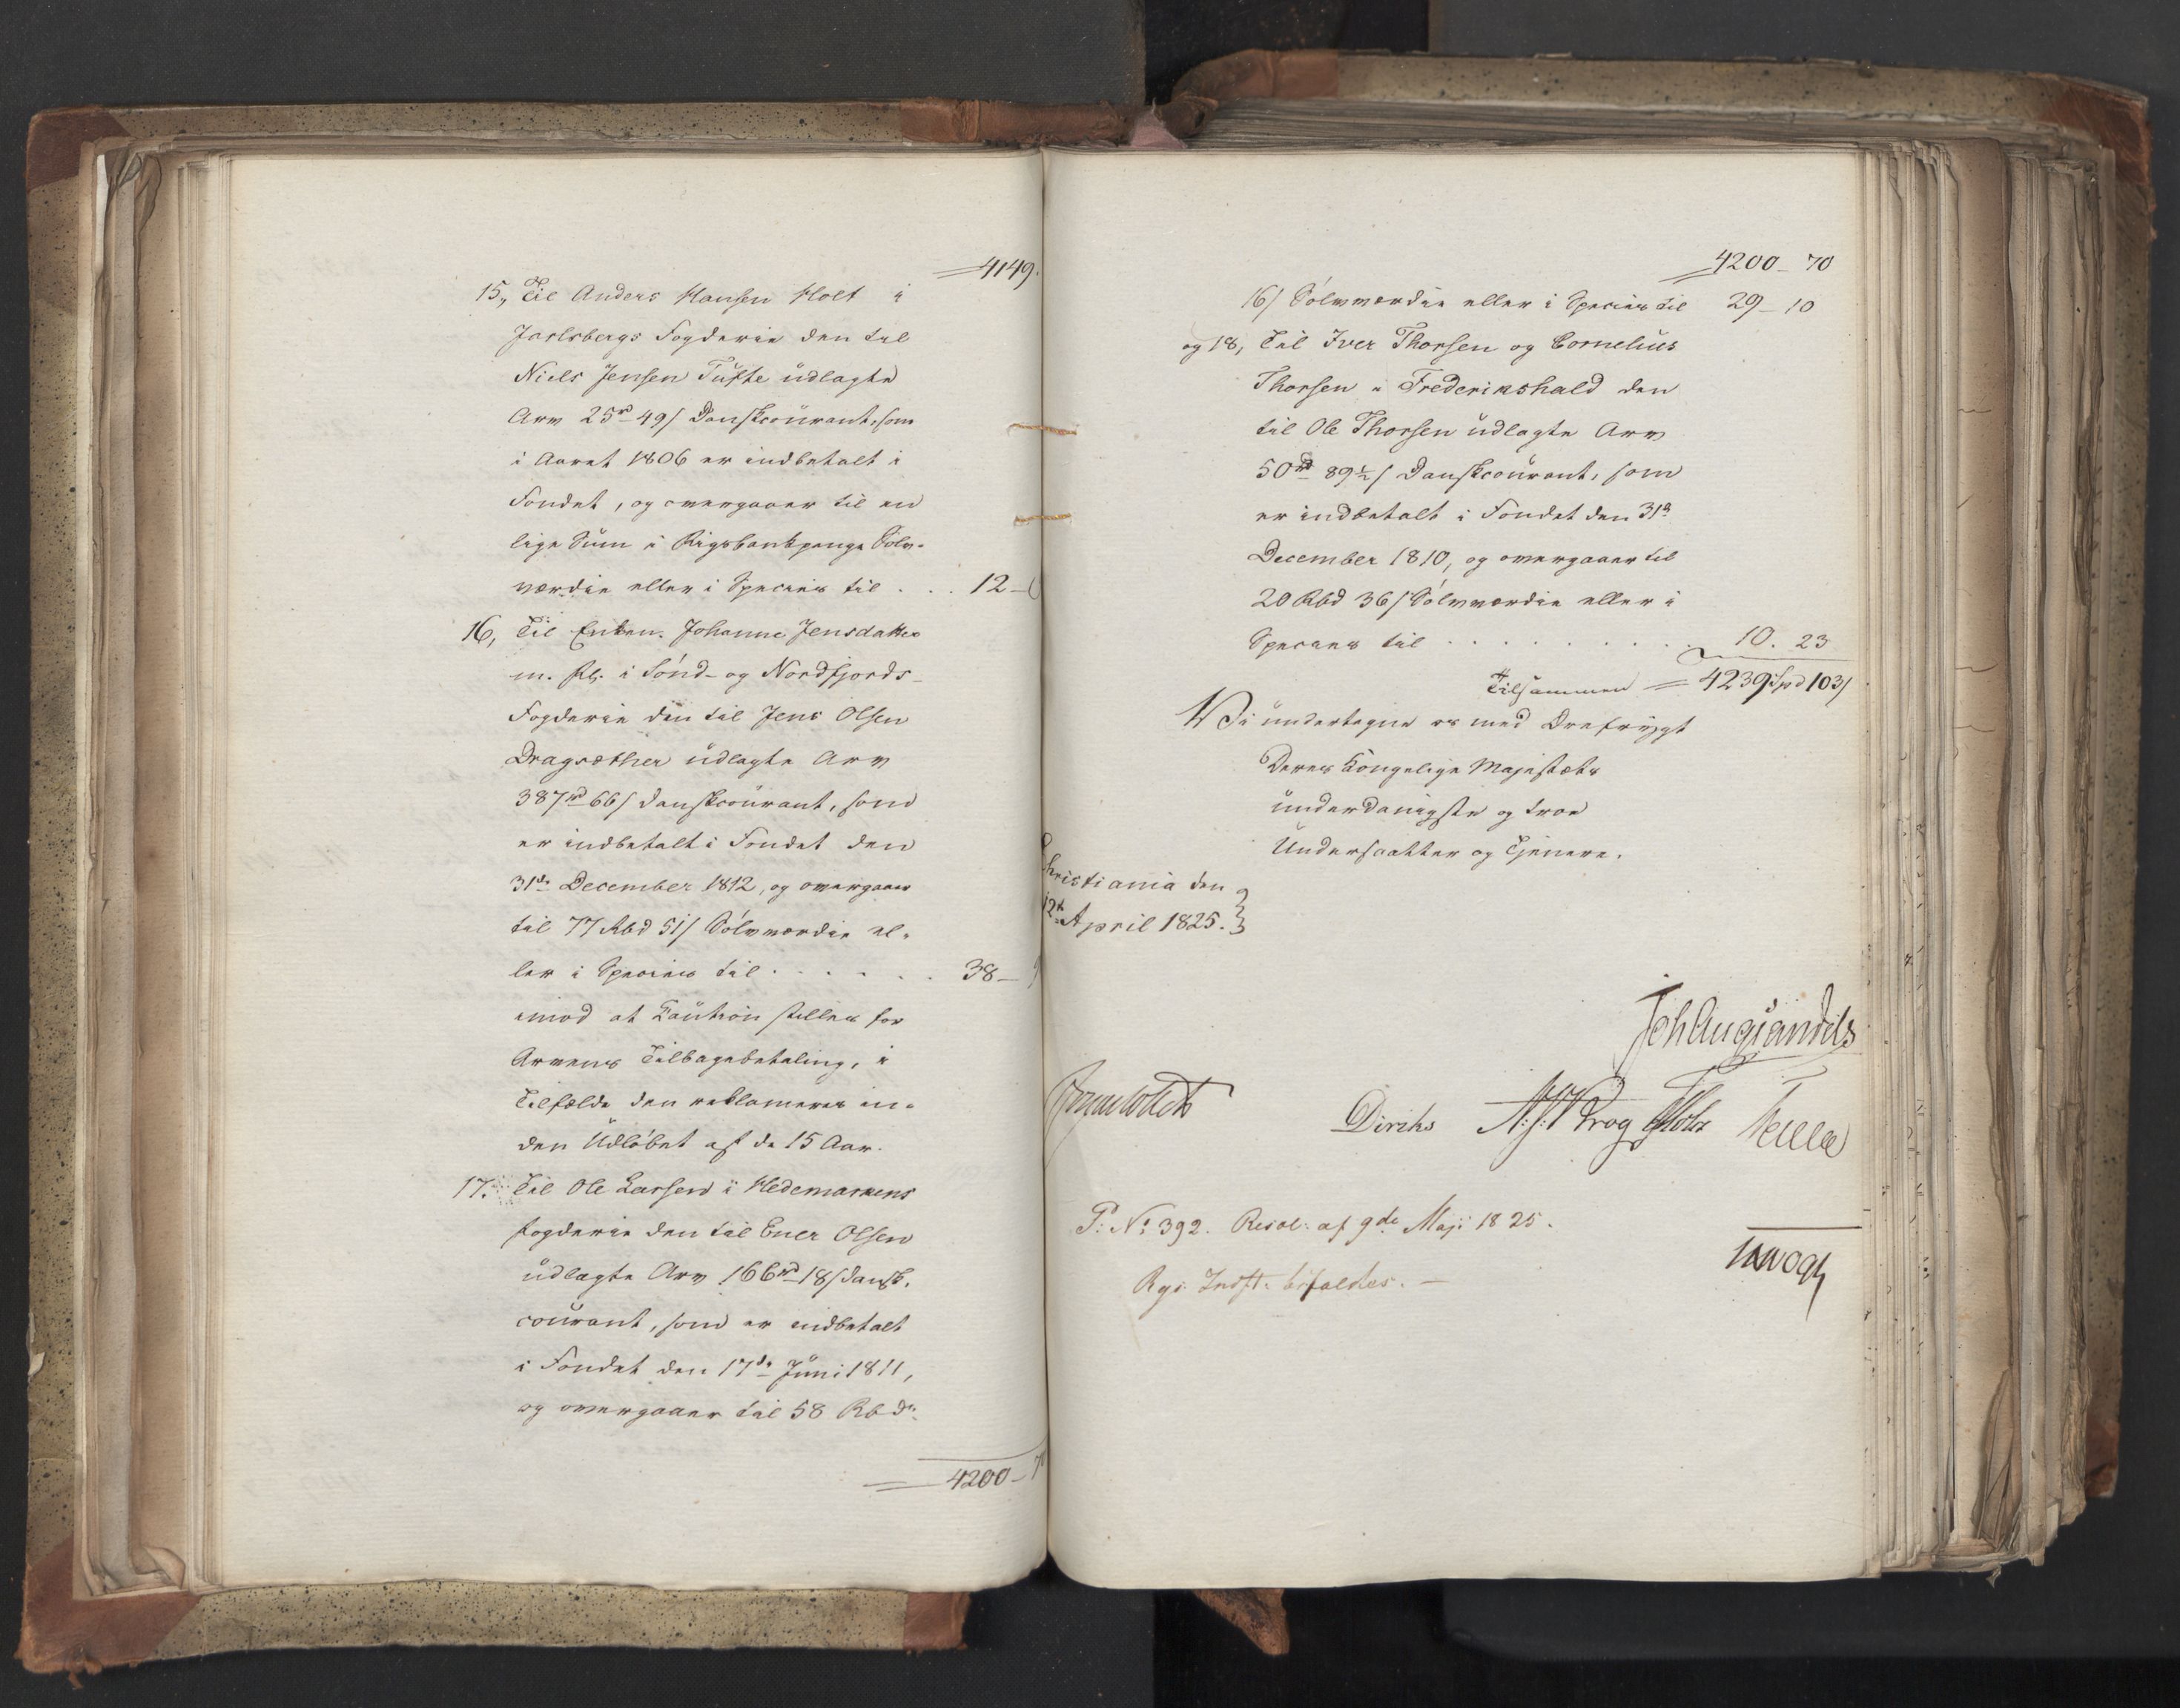 4149.
15, Til Anders Hansen Holt i
Jarlsbergs Fogderie den til
Niels Jensen Tufte udlagte
Arv 25rd 49/ Dansk courant, som
i Aaret 1806 er indbetalt i
Fondet, og overgaaer til en
lige Sum i Rigsbankpenge Sølv-
værdie eller i Species til . . . 12 -
16, Til Enken Johanne Jensdatter
m. fl. i Sönd- og Nordfjords-
Fogderie den til Jens Olsen
Dragsæther udlagte Arv
387rd 66/ Danskcourant, som
er indbetalt i Fondet den
31de December 1812, og overgaaer
til 77 Rbd 51/ Sölvværdie el-
ler i Species til . . . . . . 38 -
imod at Caution stilles for
Arvens Tilbagebetaling, i
Tilfælde den reklameres in-
den Udløbet af de 15 Aar.
17. Til Ole Larsen i Hedemarkens
Fogderie den til Ener Olsen
udlagte Arv 166rd 18/ dansk
courant, som er indbetalt
i Fondet den 17de Juni 1811,
og overgaaer til 58 Rbdr
4200 - 7
4200 - 70
16/ Sölvværdie eller i Species til 29 - 10
og 18, Til Iver Thorsen og Cornelius
Thorsen i Frederikshald den
til Ole Thorsen udlagte Arv
50rd 89½/ Danskcourant, som
er indbetalt i Fondet den 31te
December 1810, og overgaaer til
20 Rbd 36/ Sölvværdie eller i
Species til . . . . . . . . . 10. 23
Tilsammen = 4239 Spd 103/
Vi undertegne os med Ærefrygt
Deres Kongelige Majestæts
underdanigste og troe
Undersaatter og Tjenere.
Christiania den
12te April 1825.
Joh Aug Sandels
Diriks N: J: Krog
P: No 392. Resol: af 9de Maji 1825.
Rgs: Indst: bifaldes. —